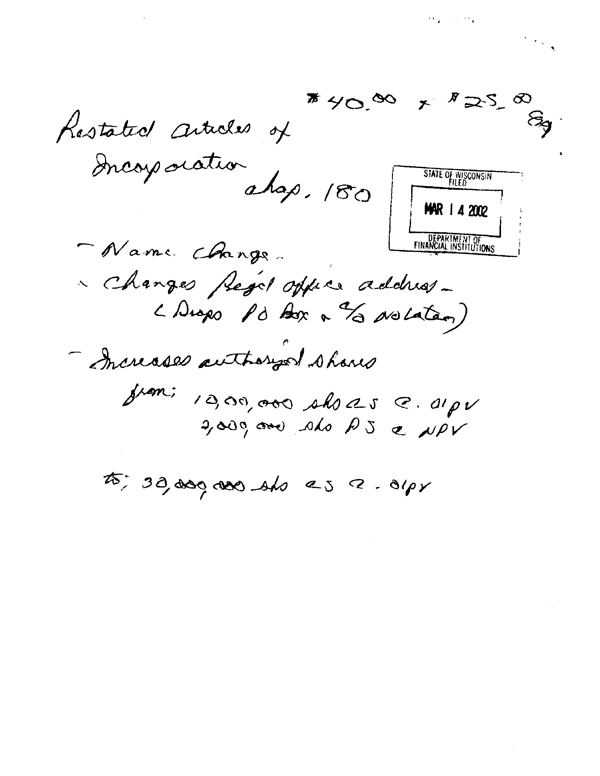 $40.00 + $25.00
Restated Articles of
Incorporation
chap. 180
STATE OF WISCONSIN
FILED
MAR 14 2002
DEPARTMENT OF
FINANCIAL INSTITUTIONS
- Name Change -
- Changes Reg'd office address -
( Drops PO Box & c/o notation)
- Increases authorized shares
from; 10,000,000 shs CS @ .01pv
2,000,000 shs PS @ NPV
to; 30,000,000 shs CS @ .01pv